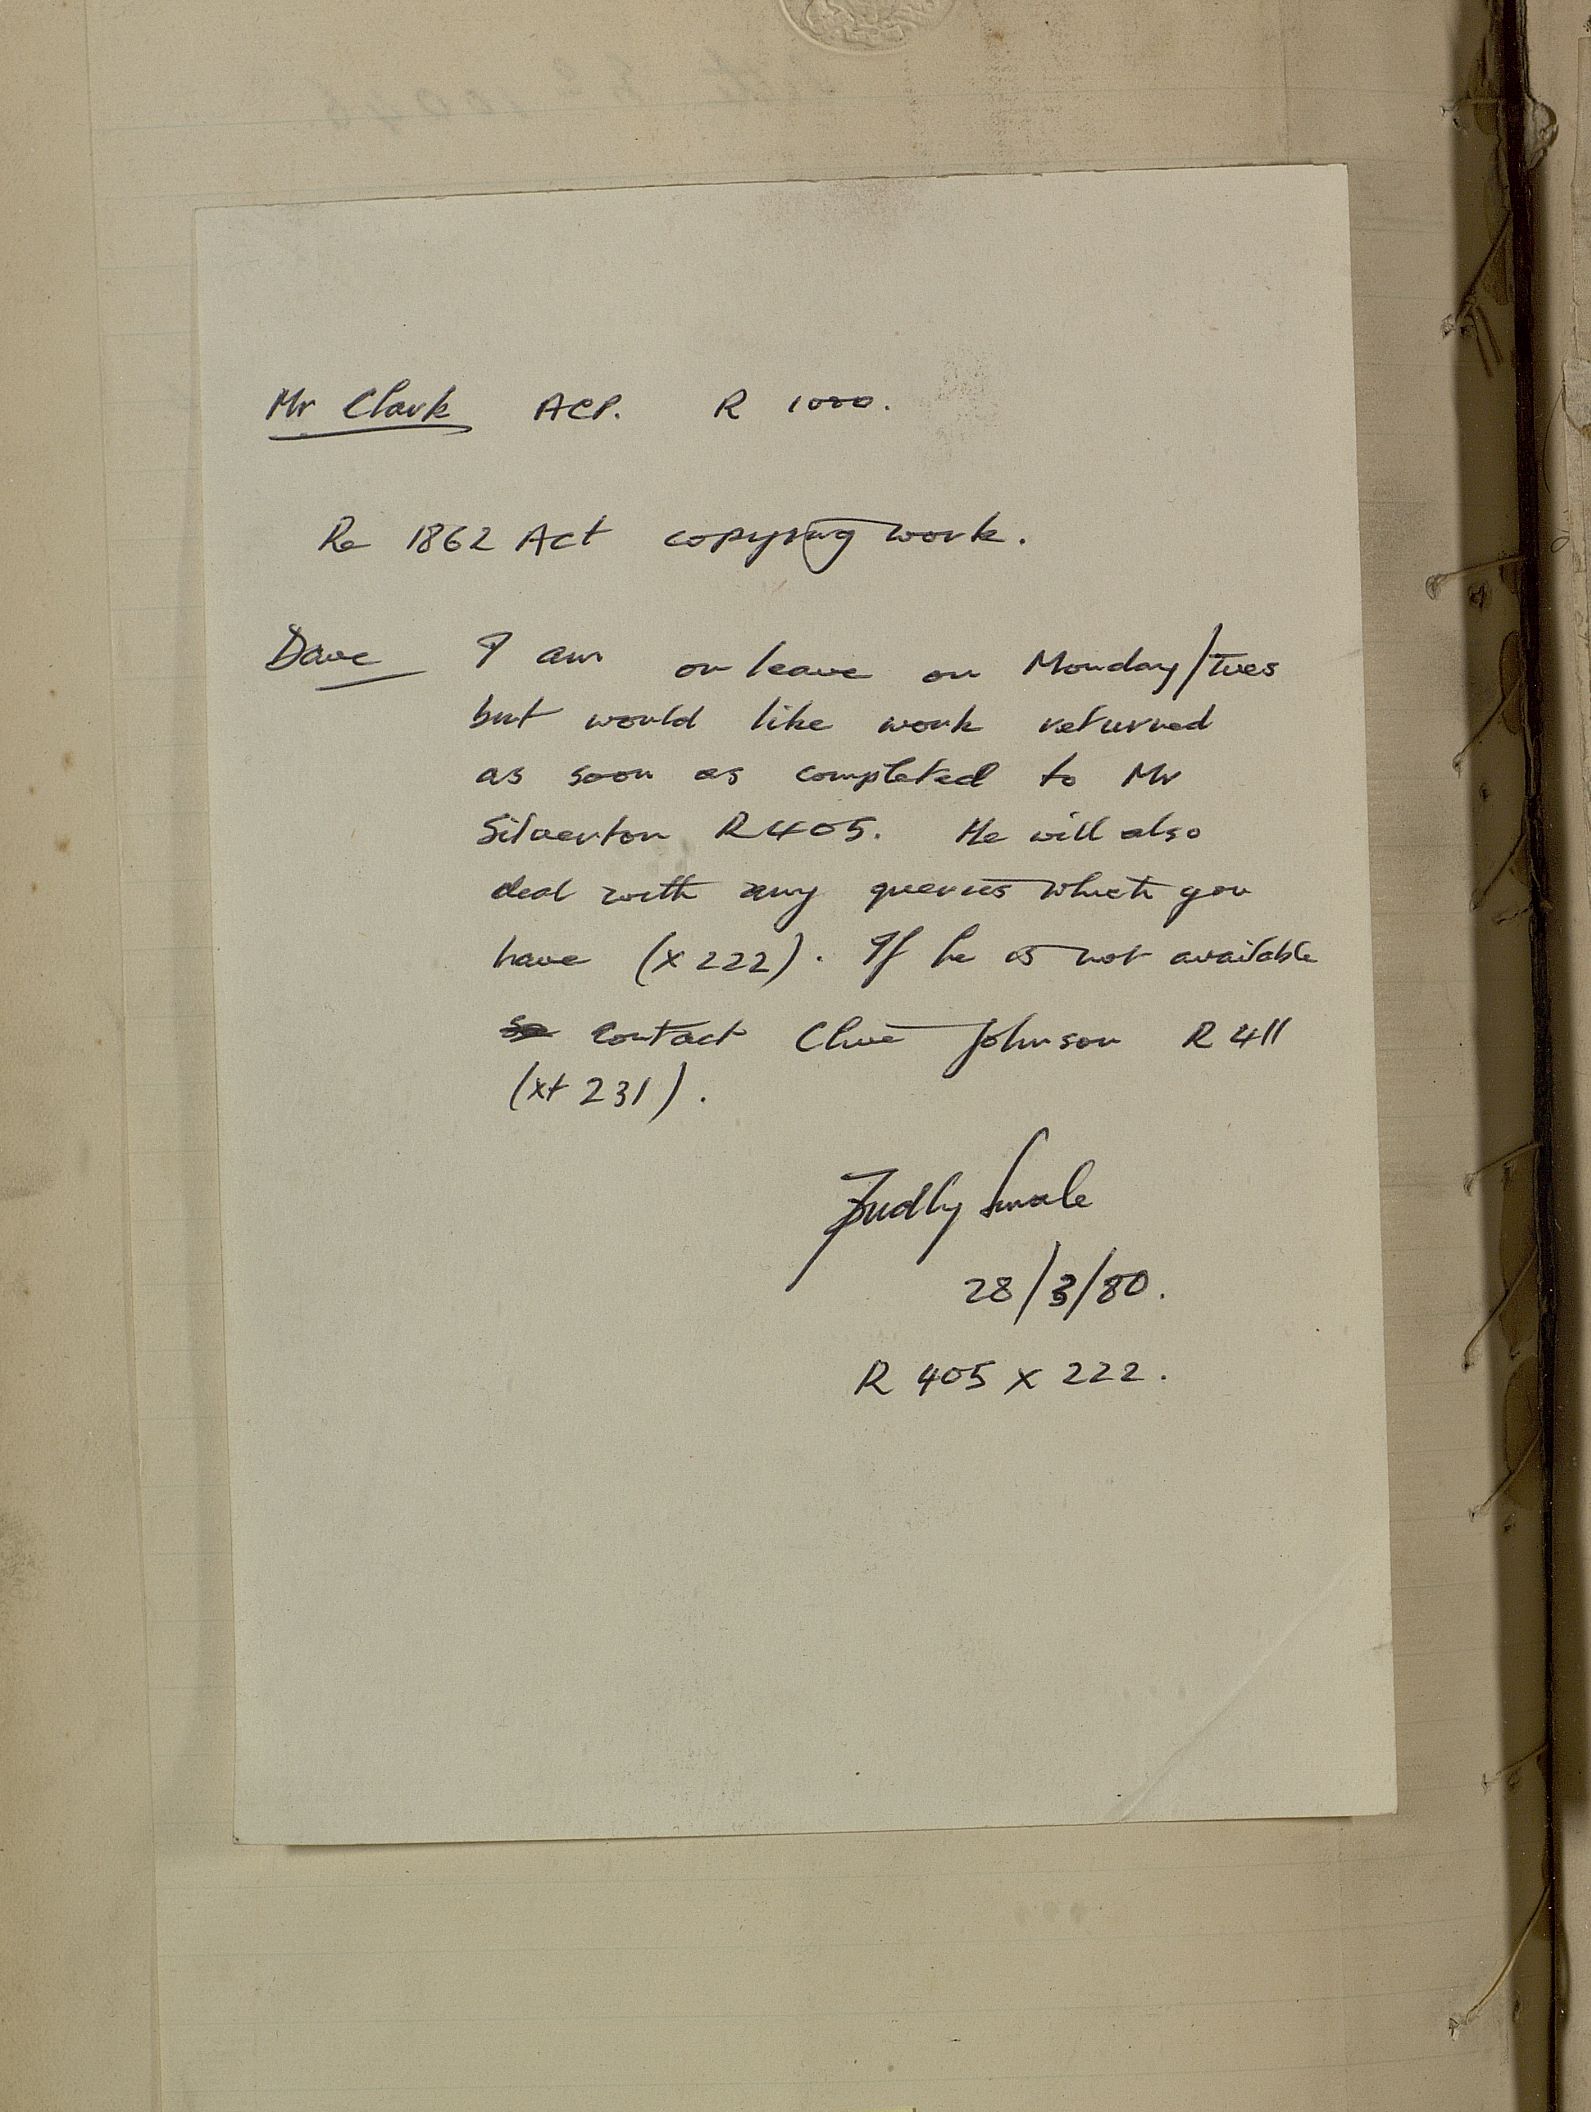 Mr Clark ACP. R 1000.
Re 1862 Act copying work.
Dave I am on leave on Monday/Tues
but would like work returned
as soon as completed to Mr
Silverton R405. He will also
deal with any queries which you
have (x 222). If he is not available
contact Clive Johnson R 411
(xt 231).
28/3/80.
R 405 x 222.